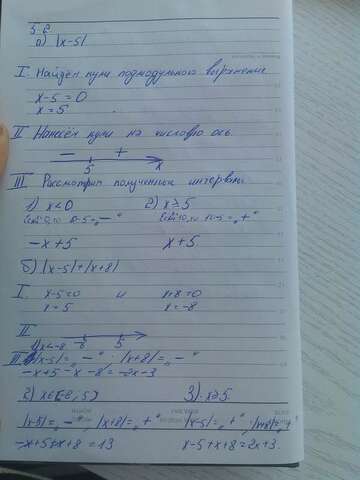 5.6
а) |x-5|
I. Найдём нули подмодульного выражение
x-5=0
x=5
II Нанесём нули на числовую ось
− +
5 x
III Рассмотрим полученные интервалы
1) x<0 2) x≥5
x-5="−" x-5="+"
-x+5 x+5
б) |x-5|+|x+8|
I. x-5=0 и x+8=0
x=5 x=-8
II
-8 5
III 1) x<-8
|x-5|="−" |x+8|="−"
-x+5-x-8=-2x-3
2) x∈[-8;5) 3) x≥5
|x-5|="−", |x+8|="+" |x-5|="+", |x+8|="+"
-x+5+x+8=13 x-5+x+8=2x+3